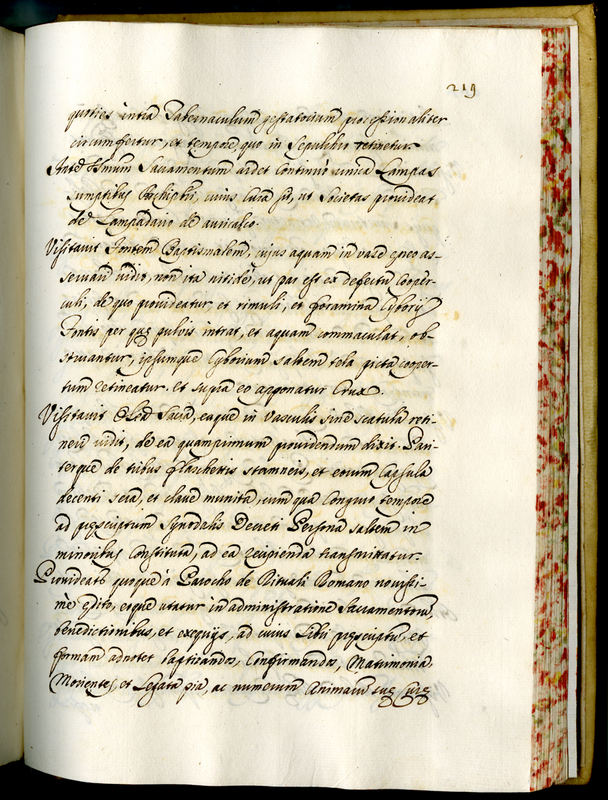 219
quoties intra Tabernaculum gestatorium processionaliter
circumfertur, et tempore quo in Sepulchro retinetur.
Ante SSmum Sacramentum ardet continuo unica Lampas
sumptibus Archiptri, cuius Cura sit, ut Societas provideat
de Lampadario de auricalco.
Visitavit Fontem Baptismalem, cujus aquam in vase eneo as-
servari vidit, non ita nitide, ut par est ex defectu Cooper-
culi, de quo provideatur, et rimuli, et foramina Cyborij
Fontis per quę pulvis intrat, et aquam commaculat, ob-
struantur, ipsumque Cyborium saltem tela picta cooper-
tum retineatur. et supra eo apponatur Crux.
Visitavit Olea Sacra, eaque in vasculis sine scatula reti-
neri vidit, de ea quamprimum providendum dixit. Pari-
terque de tribus flaschettis stamneis, et eorum Capsula
decenti sera, et clave munita, cum qua Congruo tempore
ad pręscriptum Synodalis Decreti Persona saltem in
minoribus Constituta, ad ea recipienda transmittatur.
Provideatr quoque à Parocho de Rituali Romano novissi-
mè edito, eoque utatur in administratione Sacramentorum,
benedictionibus, et exequijs, ad cuius Libri pręscriptum, et
formam adnotet baptizandos, Confirmandos, Matrimonia,
Morientes, et Legata pia, ac numerum Animarum suę Curę